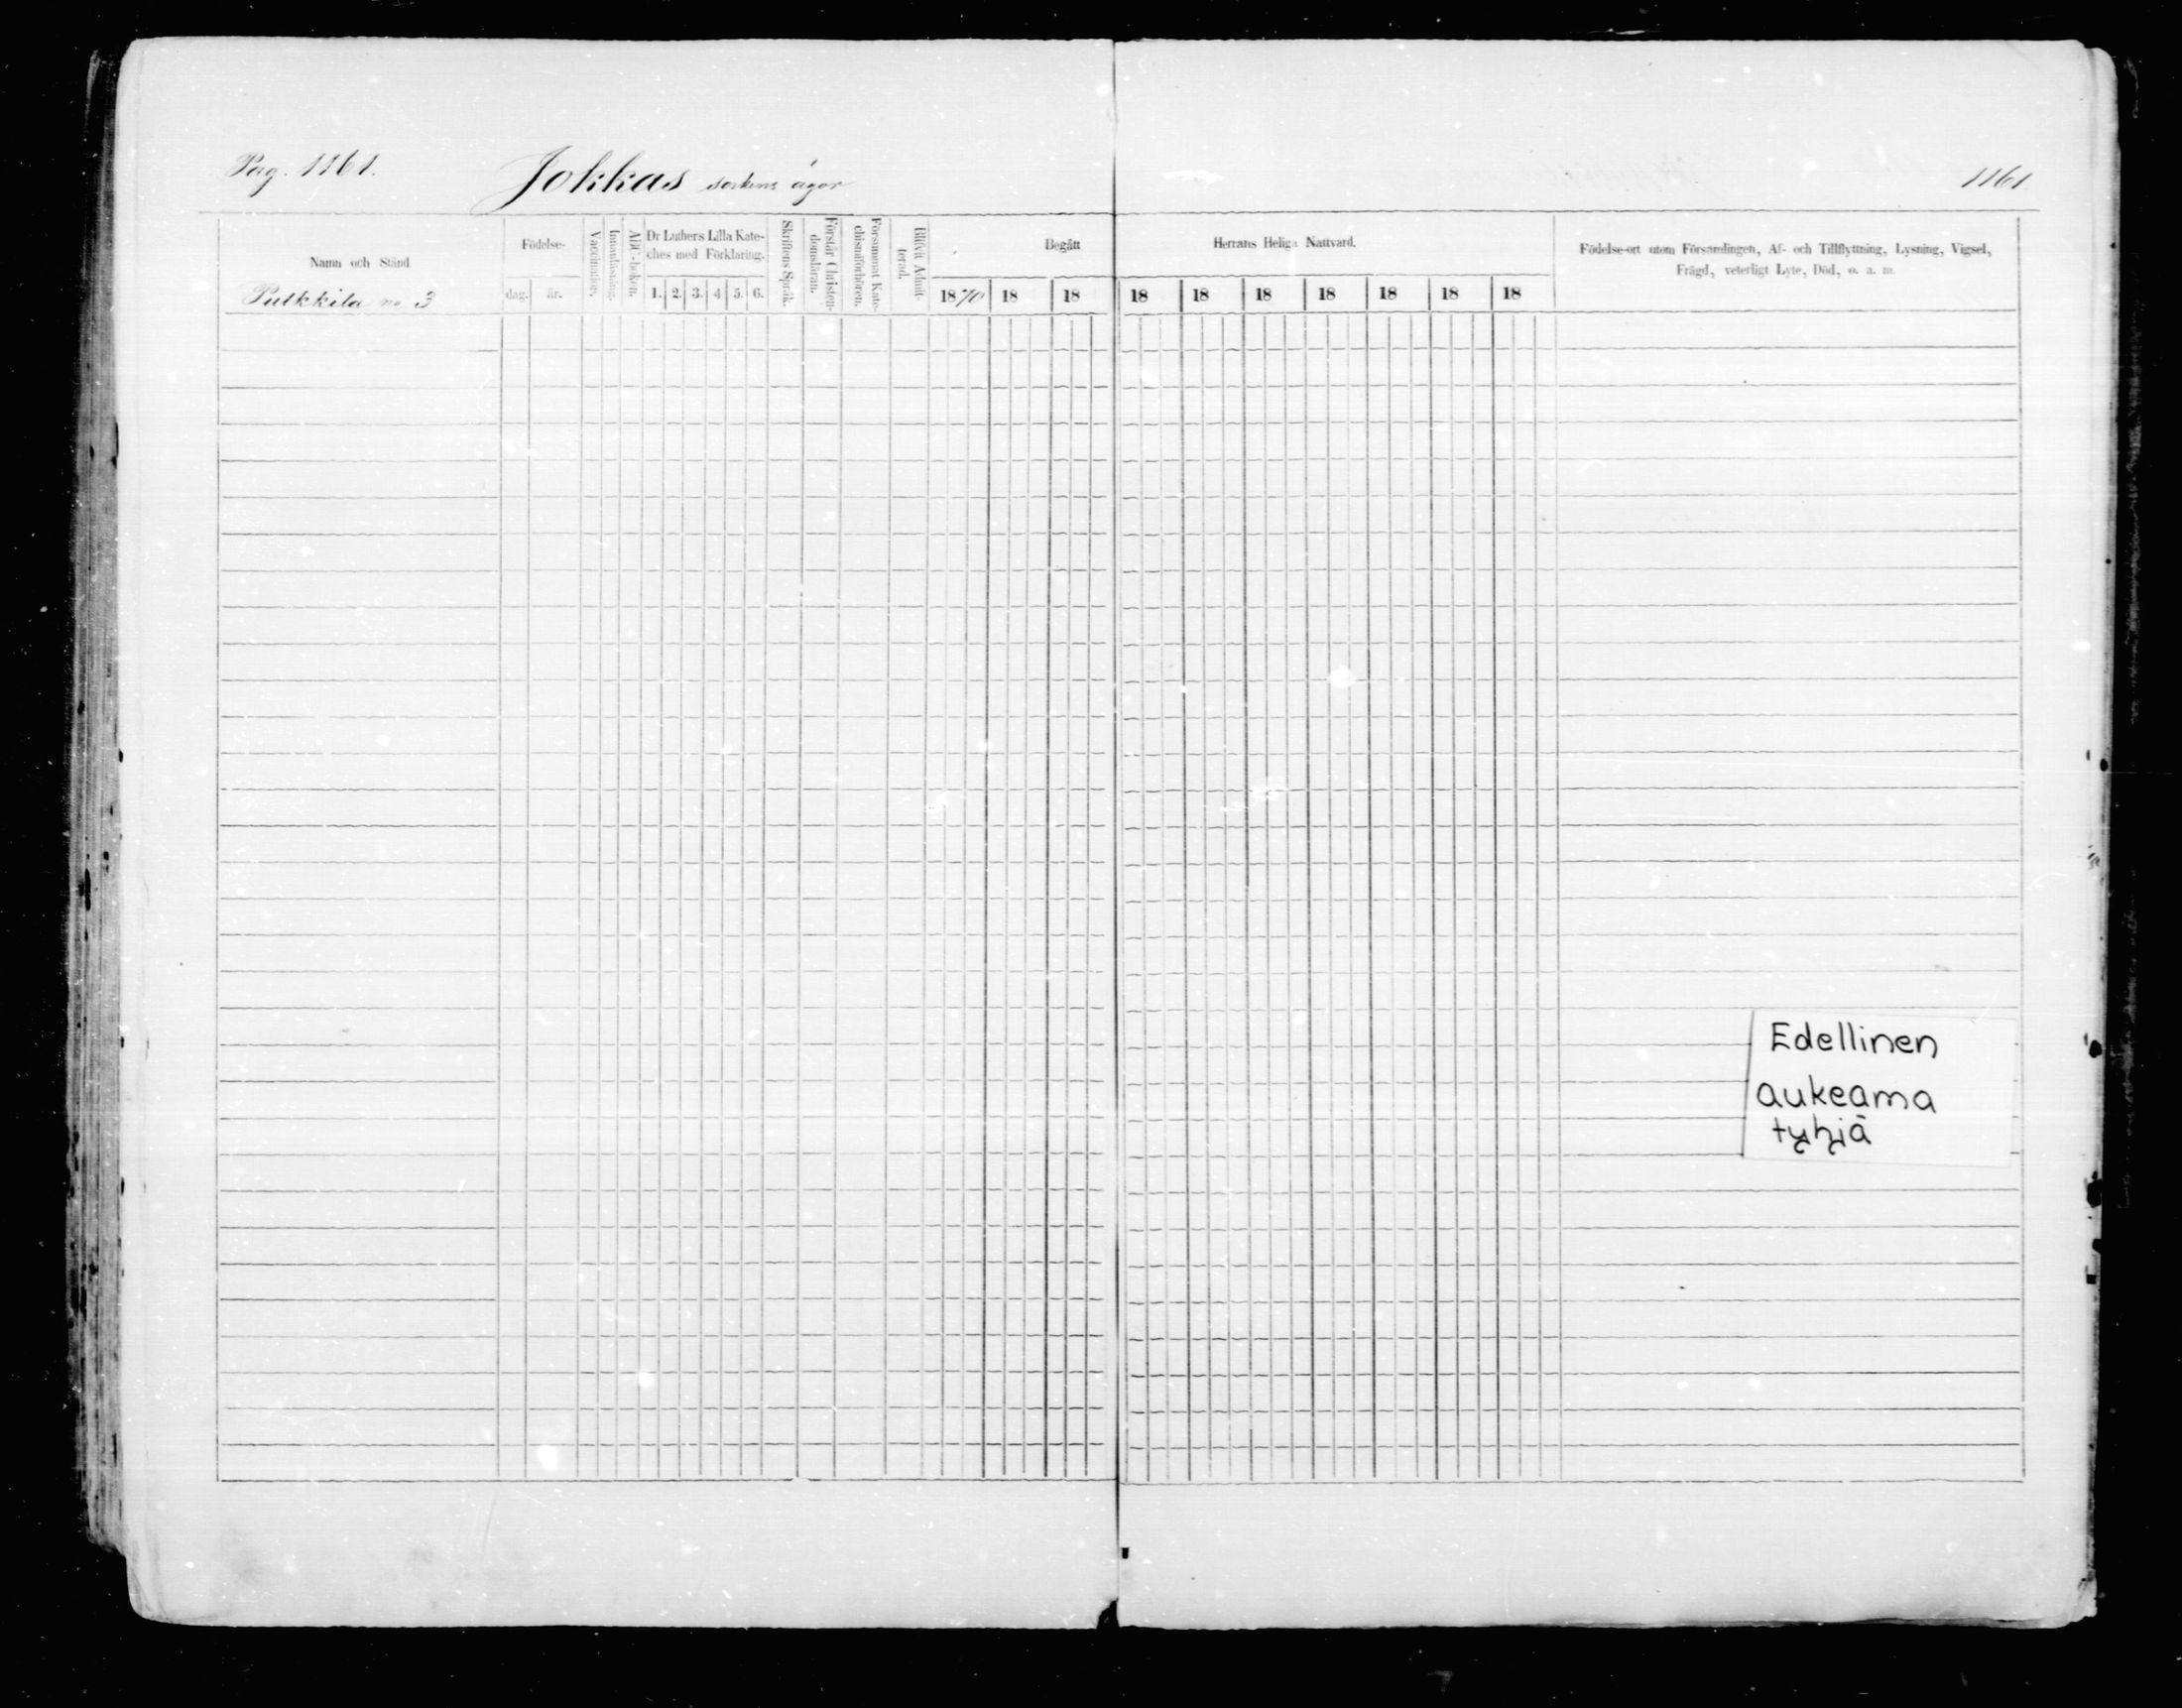 Pag. 1161. Jokkas sockens ägor 1161
Namn och Stånd
Putkkila no 3
Födelse-
dag. år.
Vaccination.
Innanläsning.
ABC-boken.
Dr Luthers Lilla Kate-
ches med Förklaring.
1. 2. 3. 4 5. 6.
Skriftens Språk.
Förstår Christen-
domsläran.
Försummat Kate-
chismiförhören.
Blifvit Admit-
terad.
Begått Herrans Heliga Nattvard.
1870 18 18 18 18 18 18 18 18 18
Födelse-ort utom Församlingen, Af- och Tillflyttning, Lysning, Vigsel,
Frägd, veterligt Lyte, Död, o. a. m.
Edellinen
aukeama
tyhjä